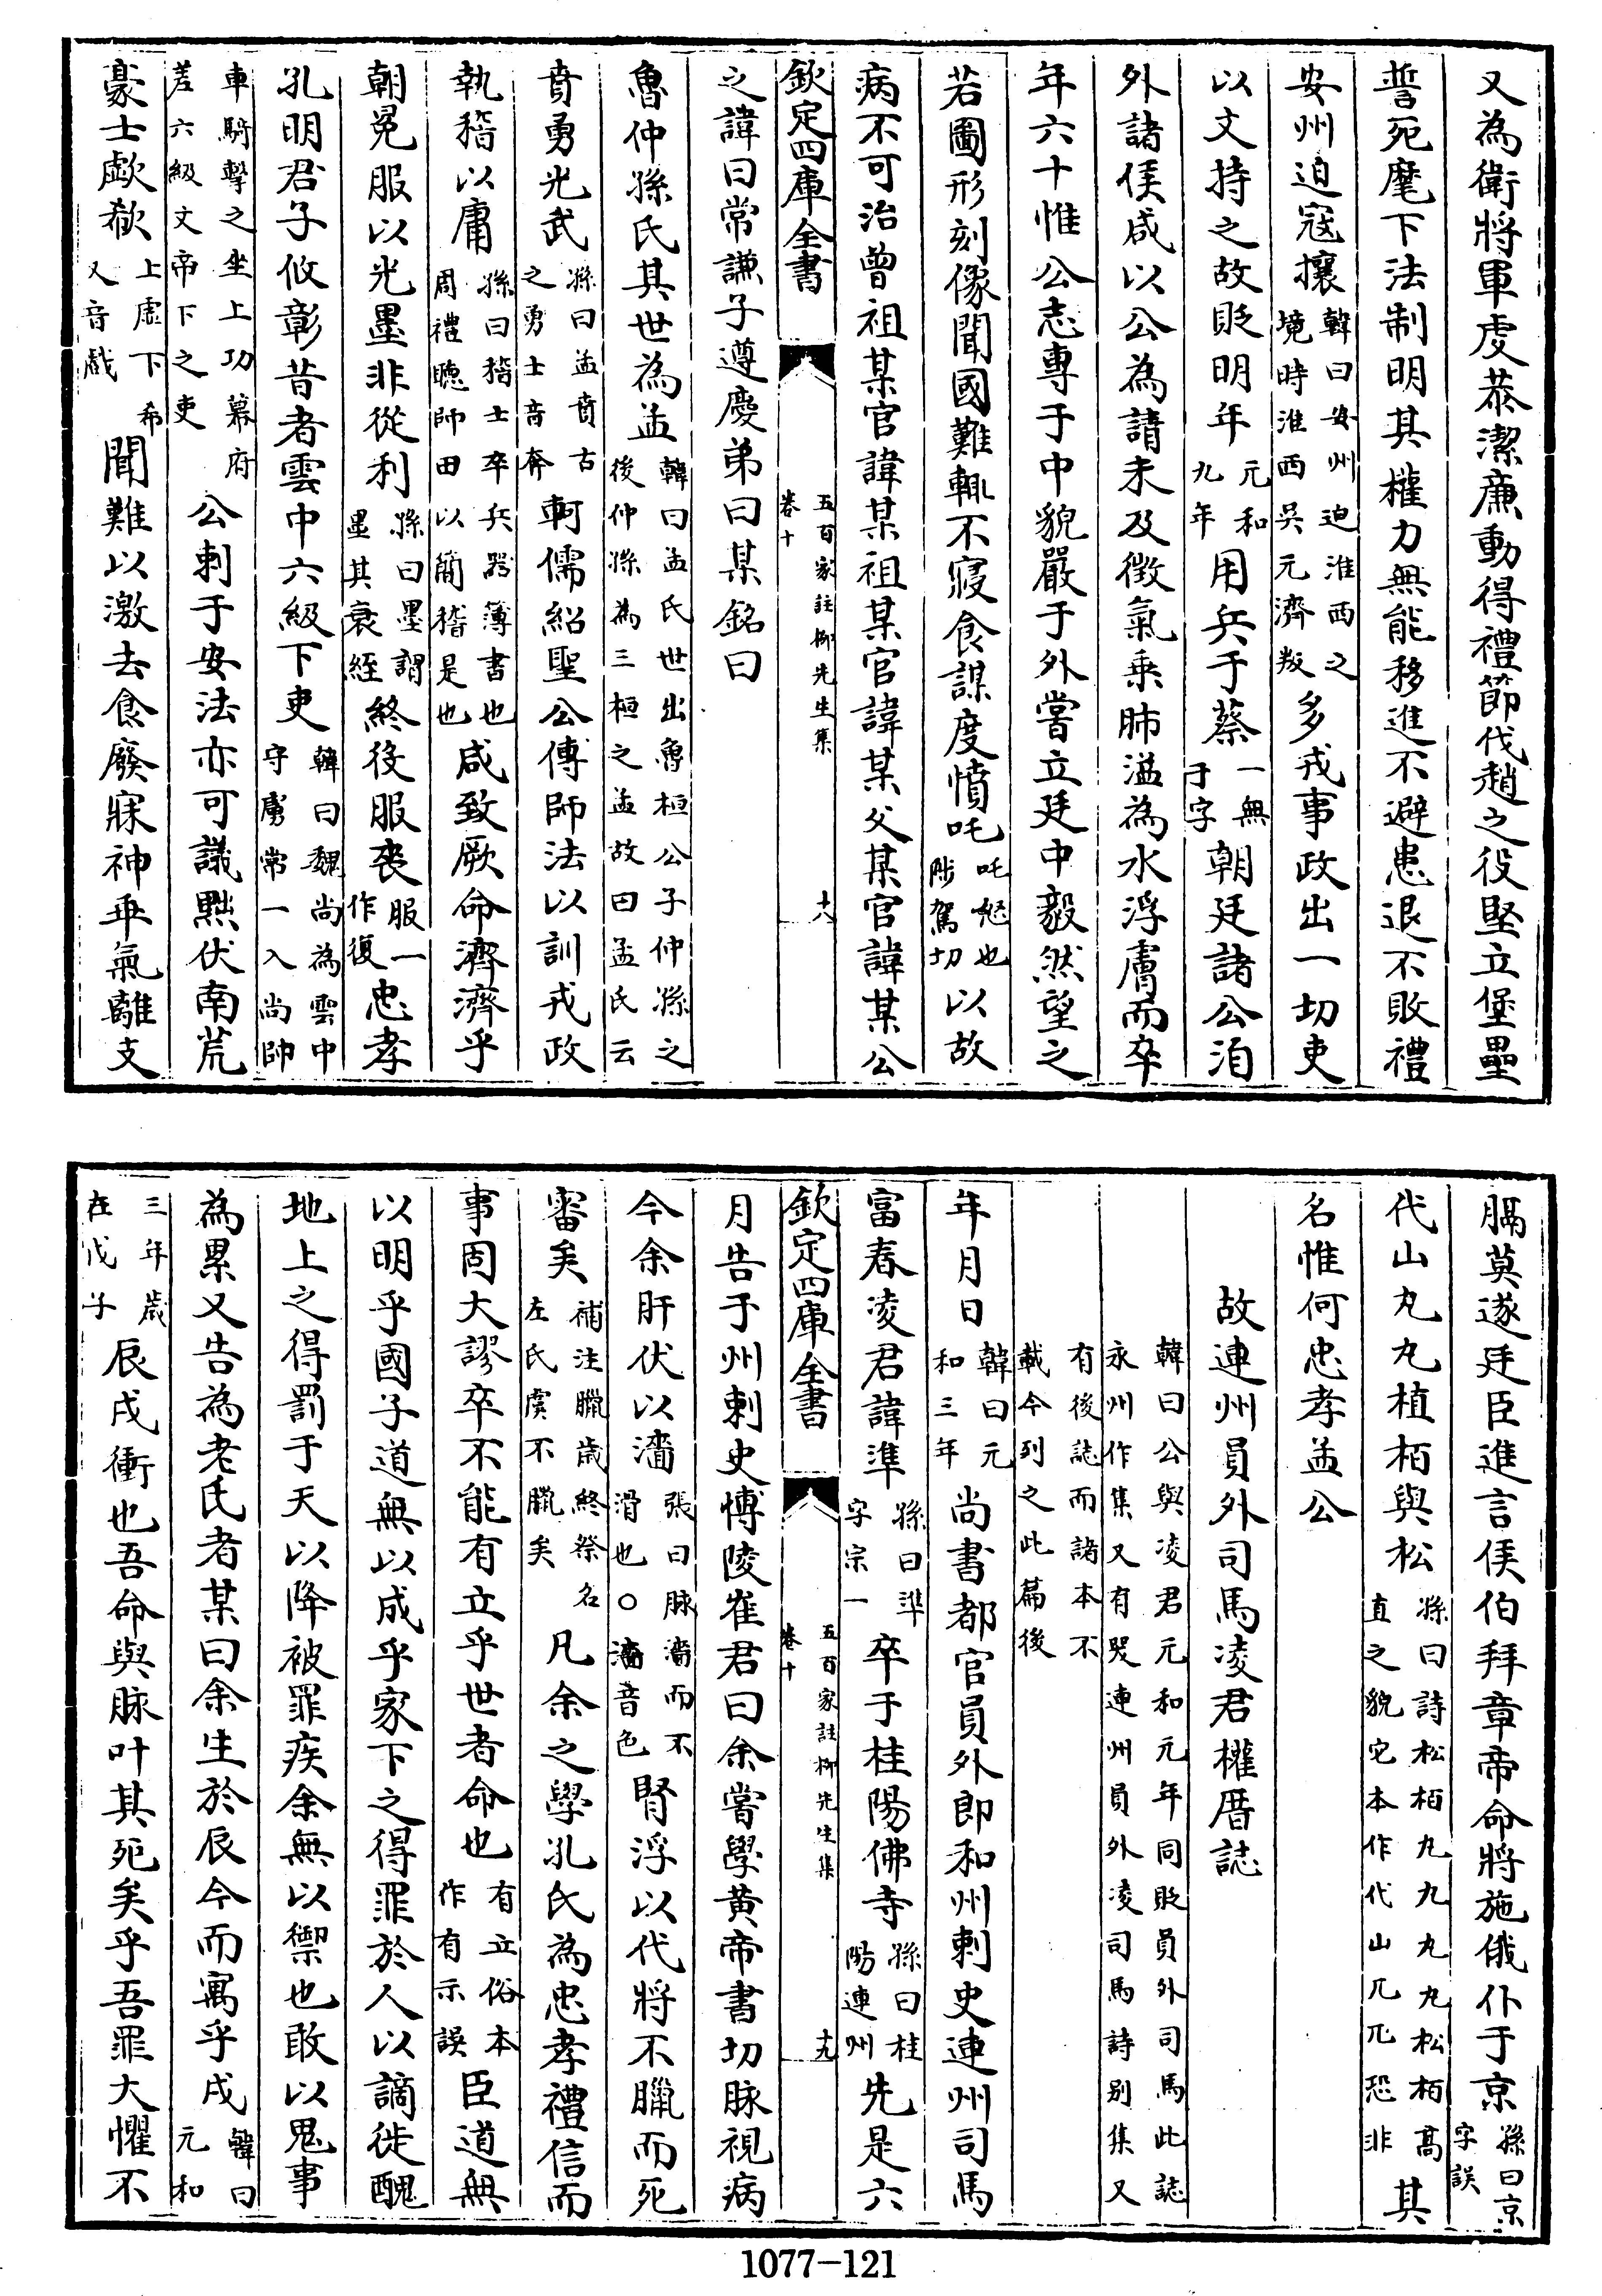 又為衛將軍虔恭潔廉動得禮節伐趙之役堅立堡壘
誓死麾下法制明其權力無能移進不避患退不敗禮
安州迫寇攘韓曰安州迫淮西之境時淮西吳元濟叛多戎事政出一切吏
以文持之故貶明年元和九年用兵于蔡一無于字朝廷諸公洎
外諸侯咸以公為請未及徵氣乗肺溢為水浮膚而卒
年六十惟公志專于中貌嚴于外嘗立廷中毅然望之
若圖形刻像聞國難輒不寢食謀度憤吒吒怒也陟駕切以故
病不可治曾祖某官諱某祖某官諱某父某官諱某公
欽定四庫全書
五百家註柳先生集
卷十
十八
之諱曰常謙子遵慶弟曰某銘曰
魯仲孫氏其世為孟韓曰孟氏世出魯桓公子仲孫之後仲孫為三桓之孟故曰孟氏云
賁勇光武孫曰孟賁古之勇士音奔軻儒紹聖公傳師法以訓戎政
執稽以庸孫曰稽士卒兵器簿書也周禮聽師田以簡稽是也咸致厥命濟濟乎
朝冕服以光墨非從利孫曰墨謂墨其衰絰終後服喪服一作復忠孝
孔明君子攸彰昔者雲中六級下吏韓曰魏尚為雲中守虜常一入尚帥
車騎擊之坐上功幕府差六級文帝下之吏公刺于安法亦可議黜伏南荒
豪士歔欷上虛下希又音戲聞難以激去食廢寐神乖氣離支
膈莫遂廷臣進言侯伯拜章帝命將施俄仆于京孫曰京字誤
代山丸丸植栢與松孫曰詩松栢丸丸丸丸松栢髙直之貌它本作代山兀兀恐非其
名惟何忠孝孟公
故連州員外司馬凌君權厝誌
韓曰公與凌君元和元年同貶員外司馬此誌永州作集又有哭連州員外凌司馬詩别集又
有後誌而諸本不載今列之此篇後
年月日韓曰元和三年尚書都官員外郎和州刺史連州司馬
富春凌君諱準孫曰準字宗一卒于桂陽佛寺孫曰桂陽連州先是六
欽定四庫全書
五百家註柳先生集
卷十
十九
月告于州刺史博陵崔君曰余嘗學黄帝書切脉視病
今余肝伏以濇張曰脉濇而不滑也○濇音色腎浮以代將不臘而死
審矣補注臘歲終祭名左氏虞不臘矣凡余之學孔氏為忠孝禮信而
事固大謬卒不能有立乎世者命也有立俗本作有示誤臣道無
以明乎國子道無以成乎家下之得罪於人以謫徙醜
地上之得罰于天以降被罪疾余無以禦也敢以鬼事
為累又告為老氏者某曰余生於辰今而寓乎戌韓曰元和
三年歲在戊子辰戌衝也吾命與脉叶其死矣乎吾罪大懼不
1077-121